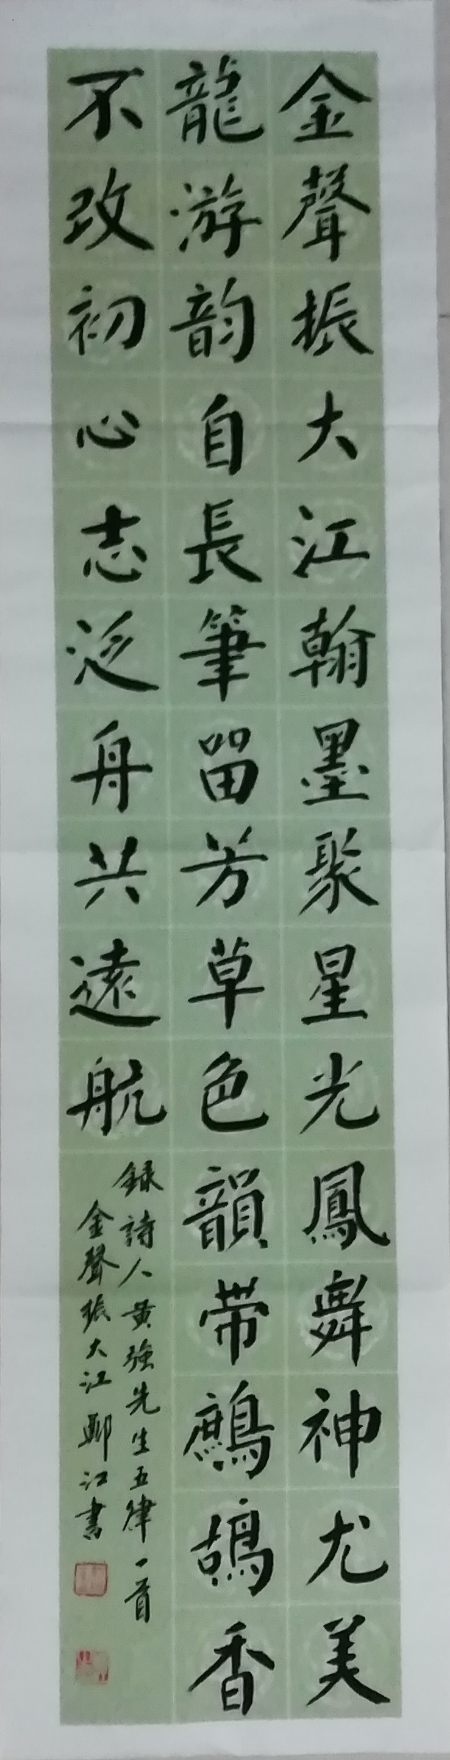 金聲振大江翰墨聚星光鳳舞神尤美
龍游韵自長筆留芳草色韻帶鷓鴣香
不改初心志泛舟共遠航
録詩人黄強先生五律一首
金聲振大江鄭江書